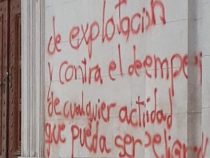 de explotación
y contra el deempe
de cualquier actiidad
que pueda ser peligr